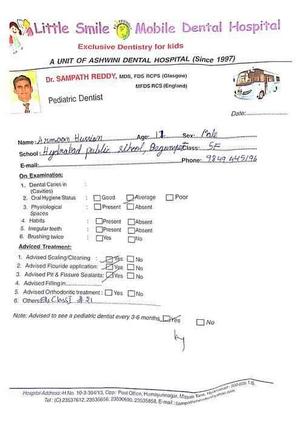 Little Smile Mobile Dental Hospital
Exclusive Dentistry for kids
A UNIT OF ASHWINI DENTAL HOSPITAL (Since 1997)
Dr. SAMPATH REDDY, MDS, FDS RCPS (Glasgow)
MFDS RCS (England)
Pediatric Dentist
Date:
Name: Armaan Hussain Age: 11 Sex: Male
School: Hyderabad public school, Begumpet Class: 5F
E-mail: Phone: 9849 445196
On Examination:
1. Dental Caries in (Cavities) :
2. Oral Hygiene Status : Good Average Poor
3. Physiological Spaces : Present Absent
4. Habits : Present Absent
5. Irregular teeth : Present Absent
6. Brushing twice : Yes No
Adviced Treatment:
1. Advised Scaling/Cleaning : Yes No
2. Advised Flouride application: Yes No
3. Advised Pit & Fissure Sealants: Yes No
4. Advised Filling in
5. Advised Orthodontic treatment : Yes No
6. Others Class I # 21
Note: Advised to see a pediatric dentist every 3-6 months Yes No
Hospital Address: H.No. 10-3-304/13, Opp: Post Office, Humayunnagar,
Tel: (O) 23537612, 23536656, 23590600, 23535858, E-mail: